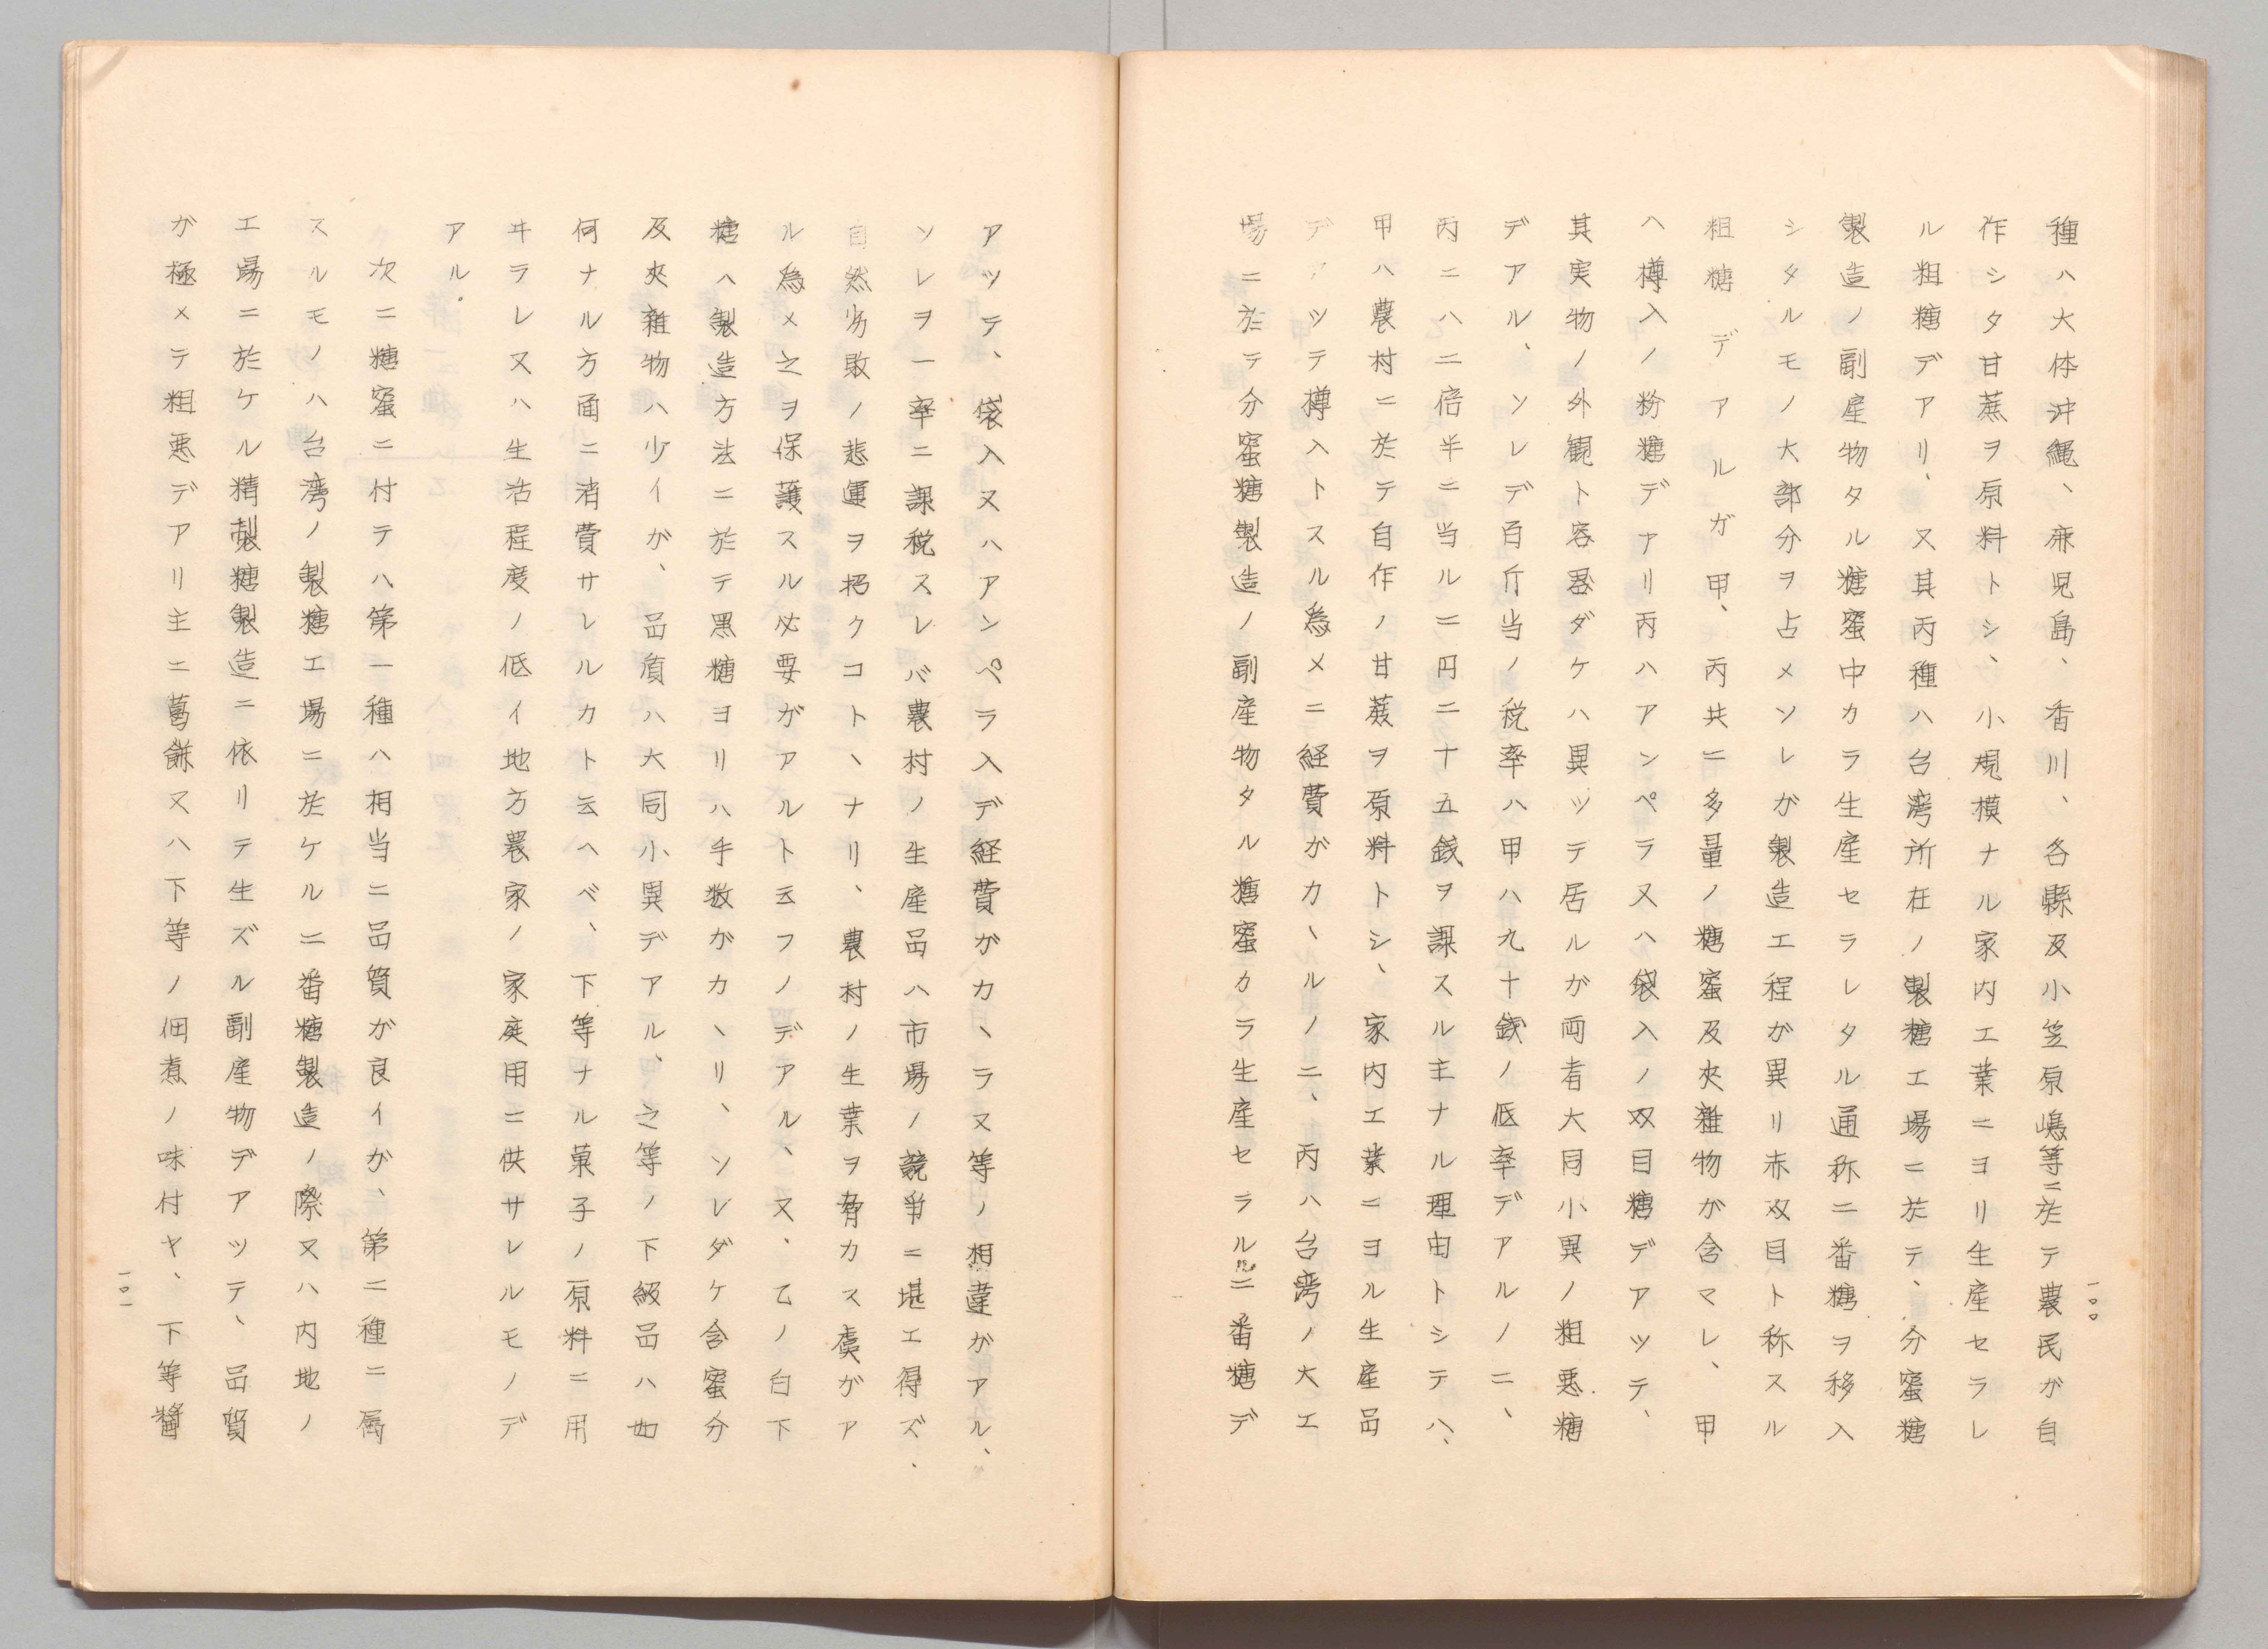 種ハ大体沖縄、鹿児島、香川、各縣及小笠原嶋等ニ於テ農民ガ自
作シタ甘蔗ヲ原料トシ、小規模ナル家内工業ニヨリ生産セラレ
ル粗糖デアリ、又其丙種ハ台湾所在ノ製糖工場ニ於テ、分蜜糖
製造ノ副産物タル糖蜜中カラ生産セラレタル通称二番糖ヲ移入
シタルモノ大部分ヲ占メソレガ製造工程ガ異リ赤双目ト称スル
粗糖デアルガ甲、丙共ニ多量ノ糖蜜及夾雑物ガ含マレ、甲
ハ樽入ノ粉糖デアリ丙ハアンペラ又ハ袋入ノ双目糖デアッテ、
其実物ノ外観ト容器ダケハ異ッテ居ルガ両者大同小異ノ粗悪糖
デアル、ソレデ百斤当ノ税率ハ甲ハ九十銭ノ低率デアルノニ、
丙ニハ二倍半ニ当ル二円二十五銭ヲ課スル主ナル理由トシテハ、
甲ハ農村ニ於テ自作ノ甘蔗ヲ原料トシ、家内工業ニヨル生産品
デアッテ樽入トスル為メニ経費ガカヽルノニ、丙ハ台湾ノ大工
場ニ於テ分蜜糖製造ノ副産物タル糖蜜カラ生産セラル二番糖デ
一〇〇
アッテ、袋入又ハアンペラ入デ経費ガカヽラヌ等ノ相違ガアル、
ソレヲ一率ニ課税スレバ農村ノ生産品ハ市場ノ競争ニ堪エ得ズ、
自然劣敗ノ悲運ヲ招クコトヽナリ、農村ノ生業ヲ脅カス虞ガア
ル為メ之ヲ保護スル必要ガアルト云フノデアル、又、乙ノ白下
糖ハ製造方法ニ於テ黒糖ヨリハ手数ガカヽリ、ソレダケ含蜜分
及夾雑物ハ少イガ、品質ハ大同小異デアル、之等ノ下級品ハ如
何ナル方面ニ消費サレルカト云ヘベ、下等ナル菓子ノ原料ニ用
ヰラレ又ハ生活程度ノ低イ地方農家ノ家庭用ニ供サレルモノデ
アル.
次ニ糖蜜ニ付テハ第一種ハ相当ニ品質ガ良イガ、第二種ニ属
スルモノハ台湾ノ製糖工場ニ於ケル二番糖製造ノ際又ハ内地ノ
工場ニ於ケル精製糖製造ニ依リテ生ズル副産物デアッテ、品質
ガ極メテ粗悪デアリ主ニ葛餅又ハ下等ノ佃煮ノ味付ヤ、下等醤
一〇一